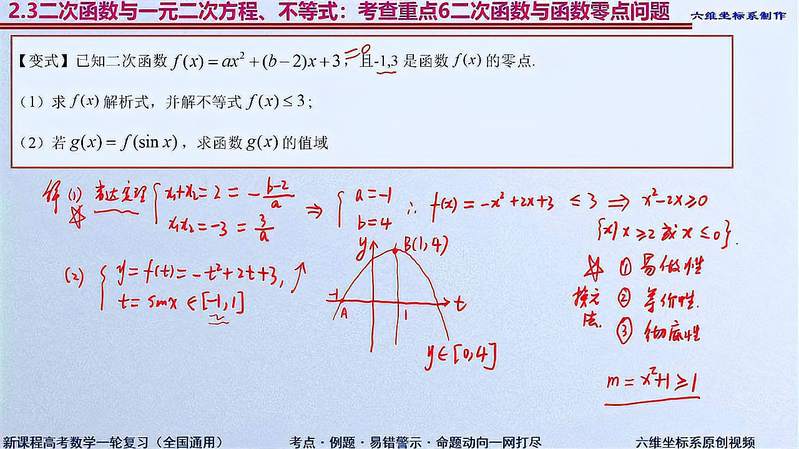 2.3二次函数与一元二次方程、不等式：考查重点6二次函数与函数零点问题
六维坐标系制作
【变式】已知二次函数 f(x)=ax²+(b−2)x+3，且-1,3 是函数 f(x) 的零点.
=0
（1）求 f(x) 解析式，并解不等式 f(x)≤3；
（2）若 g(x)=f(sin x)，求函数 g(x) 的值域
解 (1) 韦达定理 { x₁+x₂=2=-(b-2)/a
x₁x₂=-3=3/a
⇒ { a=-1
b=4
∴ f(x)=-x²+2x+3 ≤3 ⇒ x²-2x≥0
{x| x≥2 或 x≤0}.
(2) { y=f(t)=-t²+2t+3,
t=sinx∈[-1,1]
y
B(1,4)
-1
A
1
t
y∈[0,4]
换元法.
① 易做性
② 等价性.
③ 彻底性
m=x²+1≥1
新课程高考数学一轮复习（全国通用）
考点·例题·易错警示·命题动向一网打尽
六维坐标系原创视频